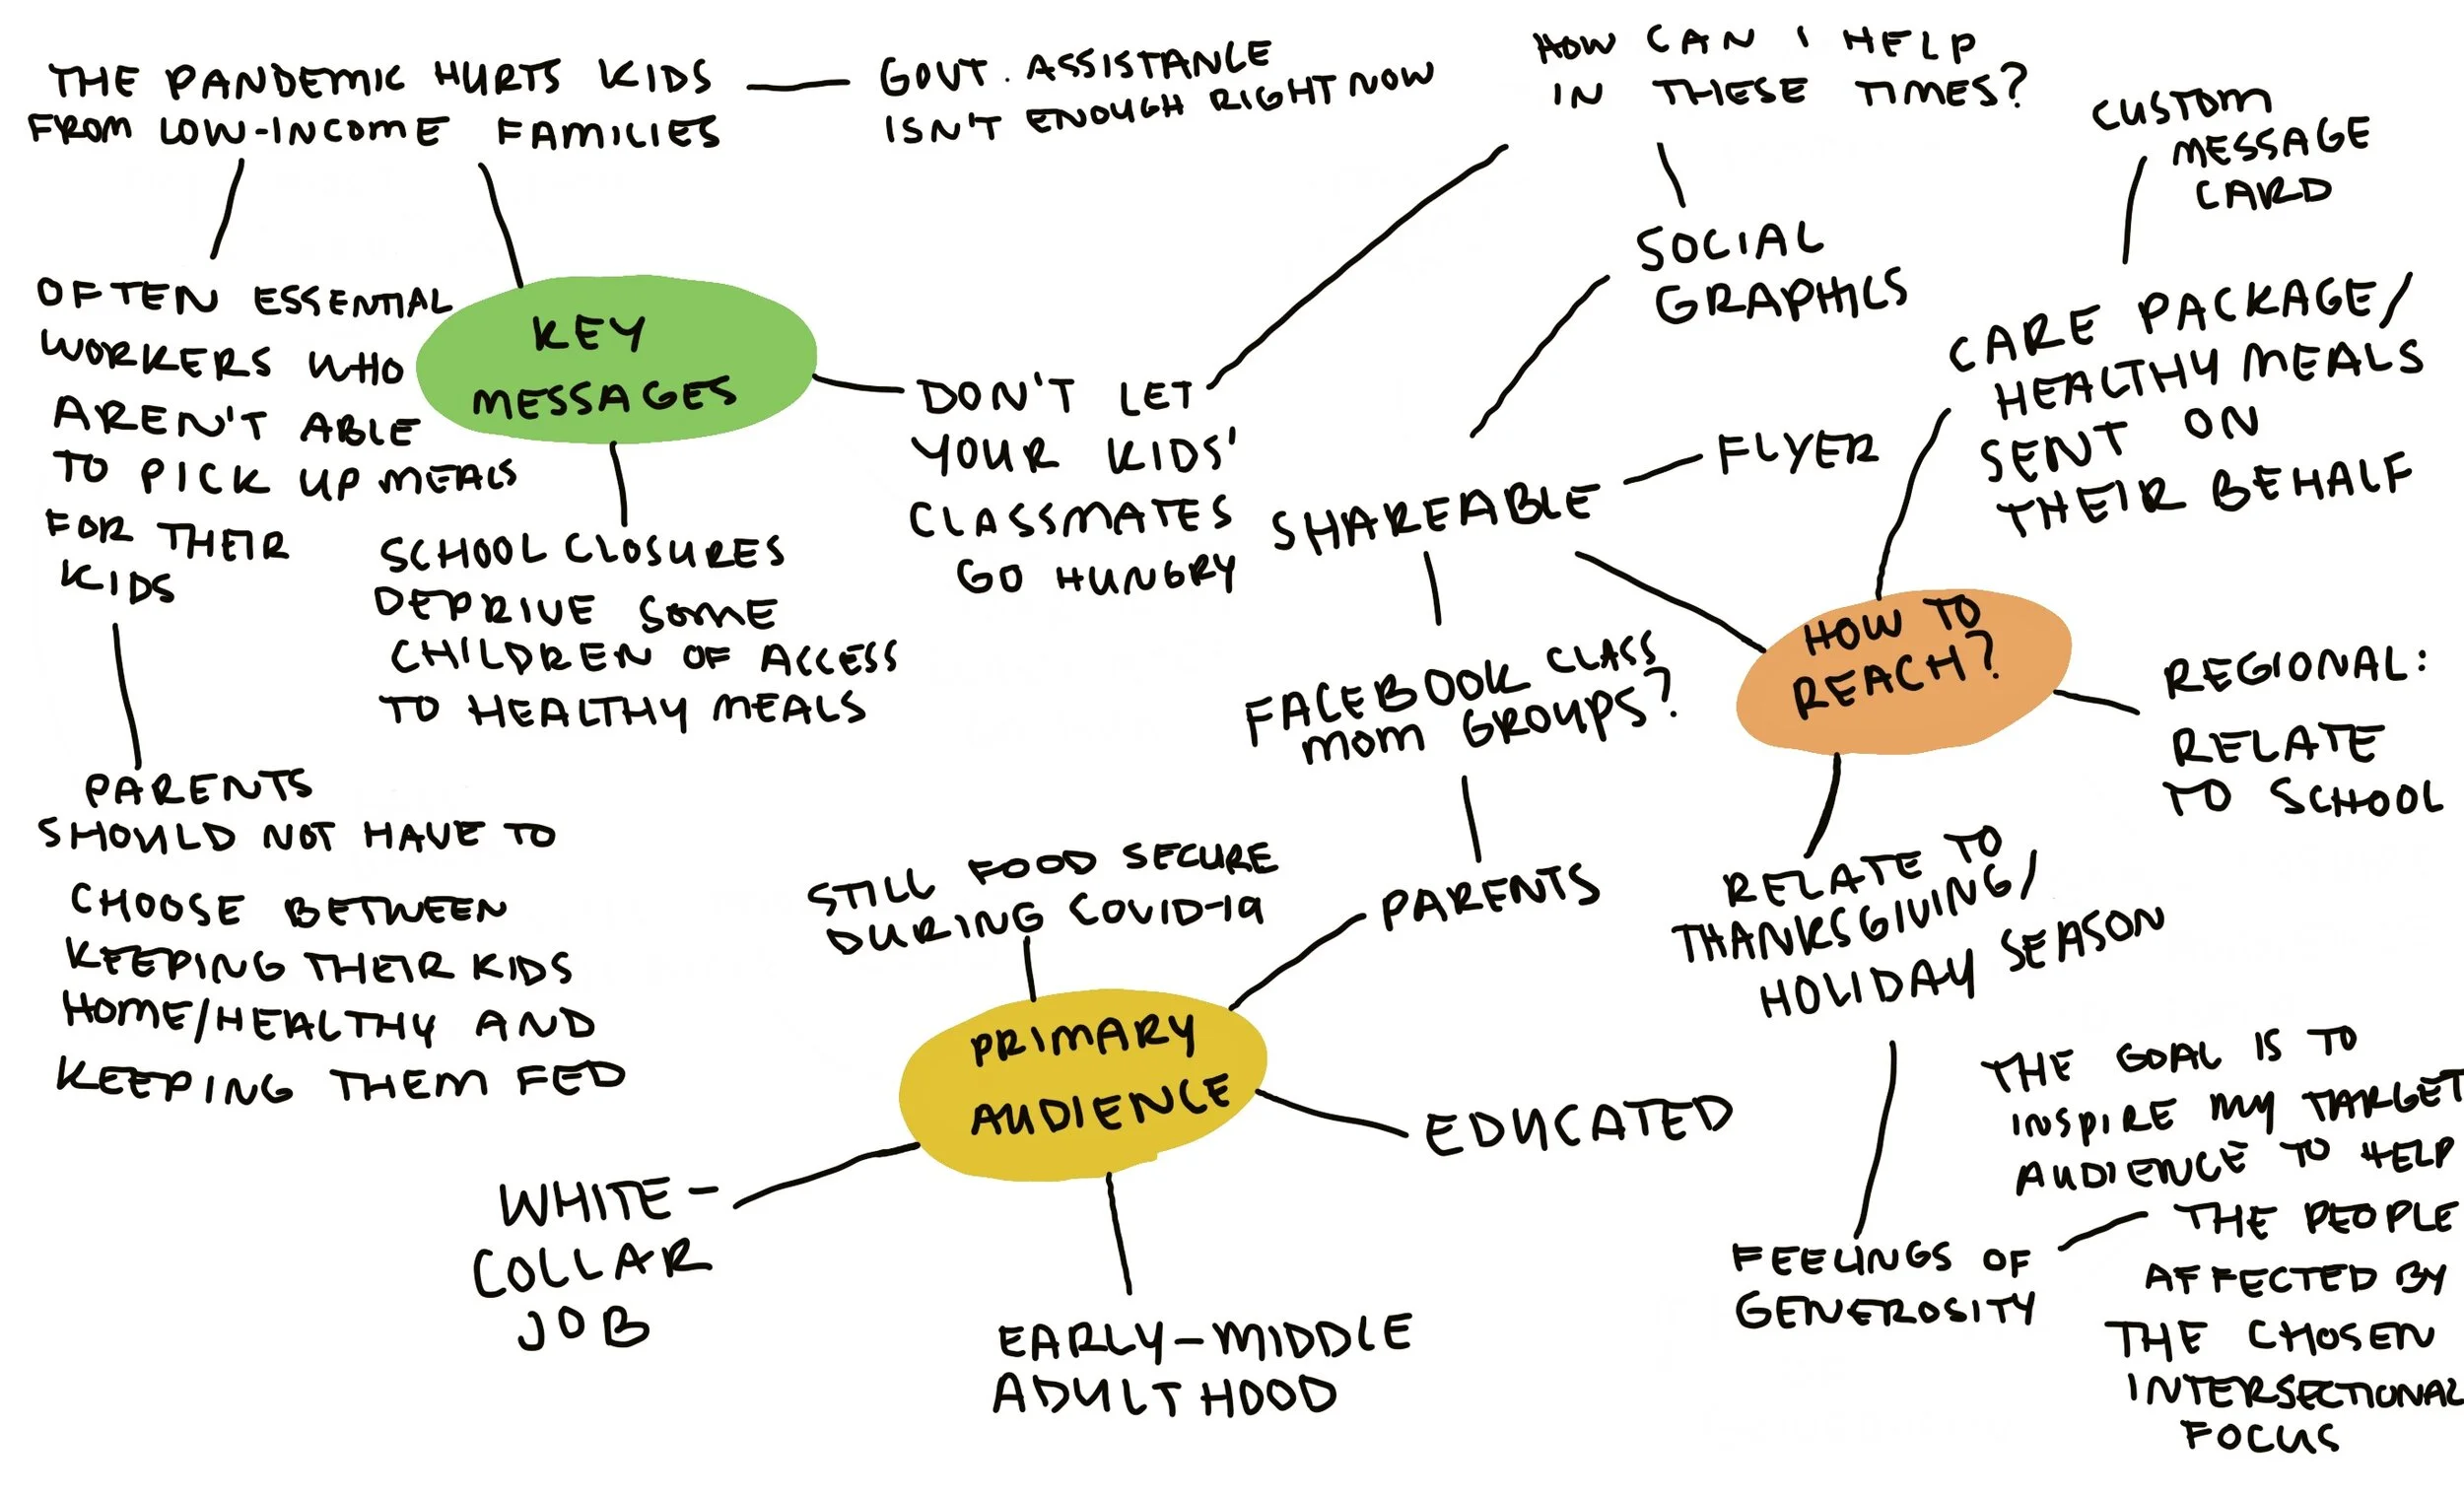 THE PANDEMIC HURTS KIDS
FROM LOW-INCOME FAMILIES
GOVT. ASSISTANCE
ISN'T ENOUGH RIGHT NOW
HOW CAN I HELP
IN THESE TIMES?
CUSTOM
MESSAGE
CARD
OFTEN ESSENTIAL
WORKERS WHO
AREN'T ABLE
TO PICK UP MEALS
FOR THEIR
KIDS
KEY
MESSAGES
SOCIAL
GRAPHICS
CARE PACKAGE/
HEALTHY MEALS
SENT ON
THEIR BEHALF
DON'T LET
YOUR KIDS'
CLASSMATES
GO HUNGRY
SHAREABLE
FLYER
SCHOOL CLOSURES
DEPRIVE SOME
CHILDREN OF ACCESS
TO HEALTHY MEALS
FACEBOOK CLASS
MOM GROUPS?
HOW TO
REACH?
REGIONAL:
RELATE
TO SCHOOL
PARENTS
SHOULD NOT HAVE TO
CHOOSE BETWEEN
KEEPING THEIR KIDS
HOME/HEALTHY AND
KEEPING THEM FED
STILL FOOD SECURE
DURING COVID-19
PARENTS
RELATE TO
THANKSGIVING/
HOLIDAY SEASON
PRIMARY
AUDIENCE
EDUCATED
WHITE-
COLLAR
JOB
EARLY-MIDDLE
ADULTHOOD
FEELINGS OF
GENEROSITY
THE GOAL IS TO
INSPIRE MY TARGET
AUDIENCE TO HELP
THE PEOPLE
AFFECTED BY
THE CHOSEN
INTERSECTIONAL
FOCUS